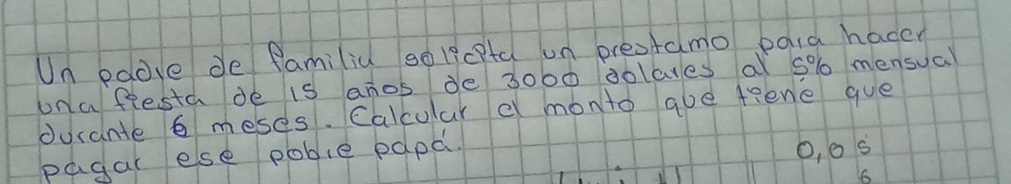 Un padre de familia solicita un prestamo para hacer
una fiesta de 15 años de 3000 dolares al 5% mensual
durante 6 meses. Calcular el monto que tiene que
pagar ese pobre papá.
0,05
6